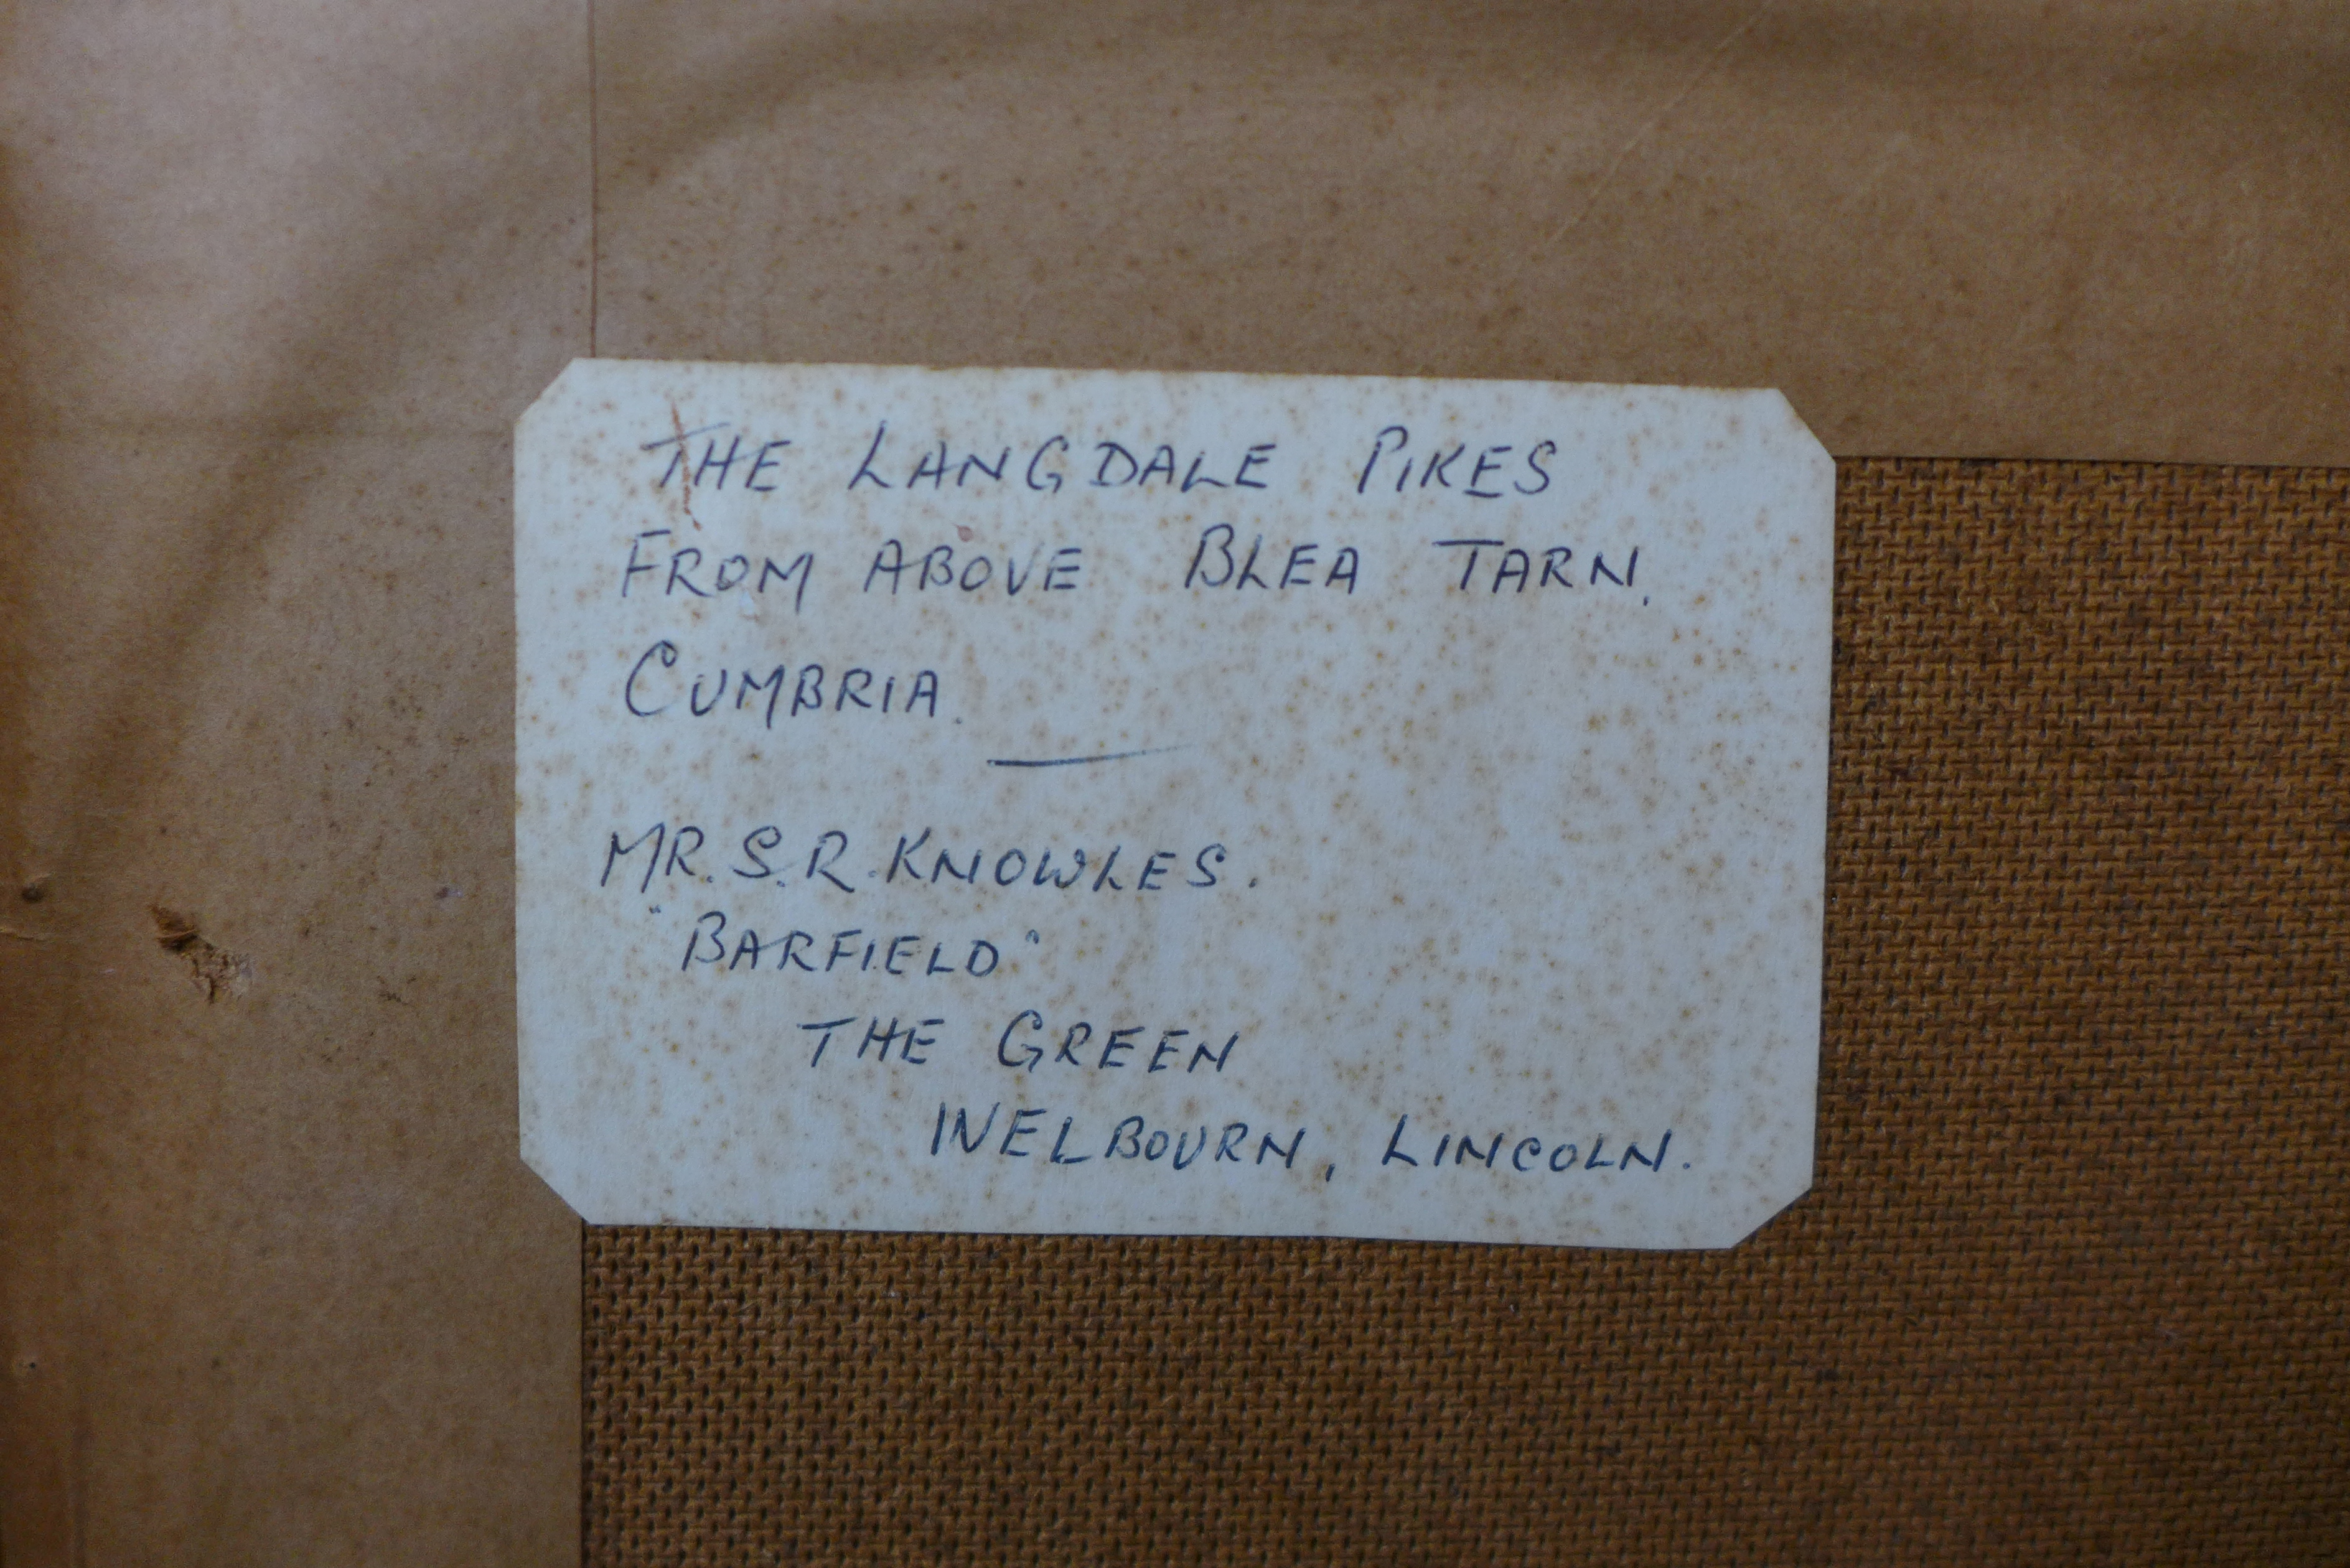 THE LANGDALE PIKES
FROM ABOVE BLEA TARN.
CUMBRIA.
MR. S. R. KNOWLES.
"BARFIELD"
THE GREEN
WELBOURN, LINCOLN.